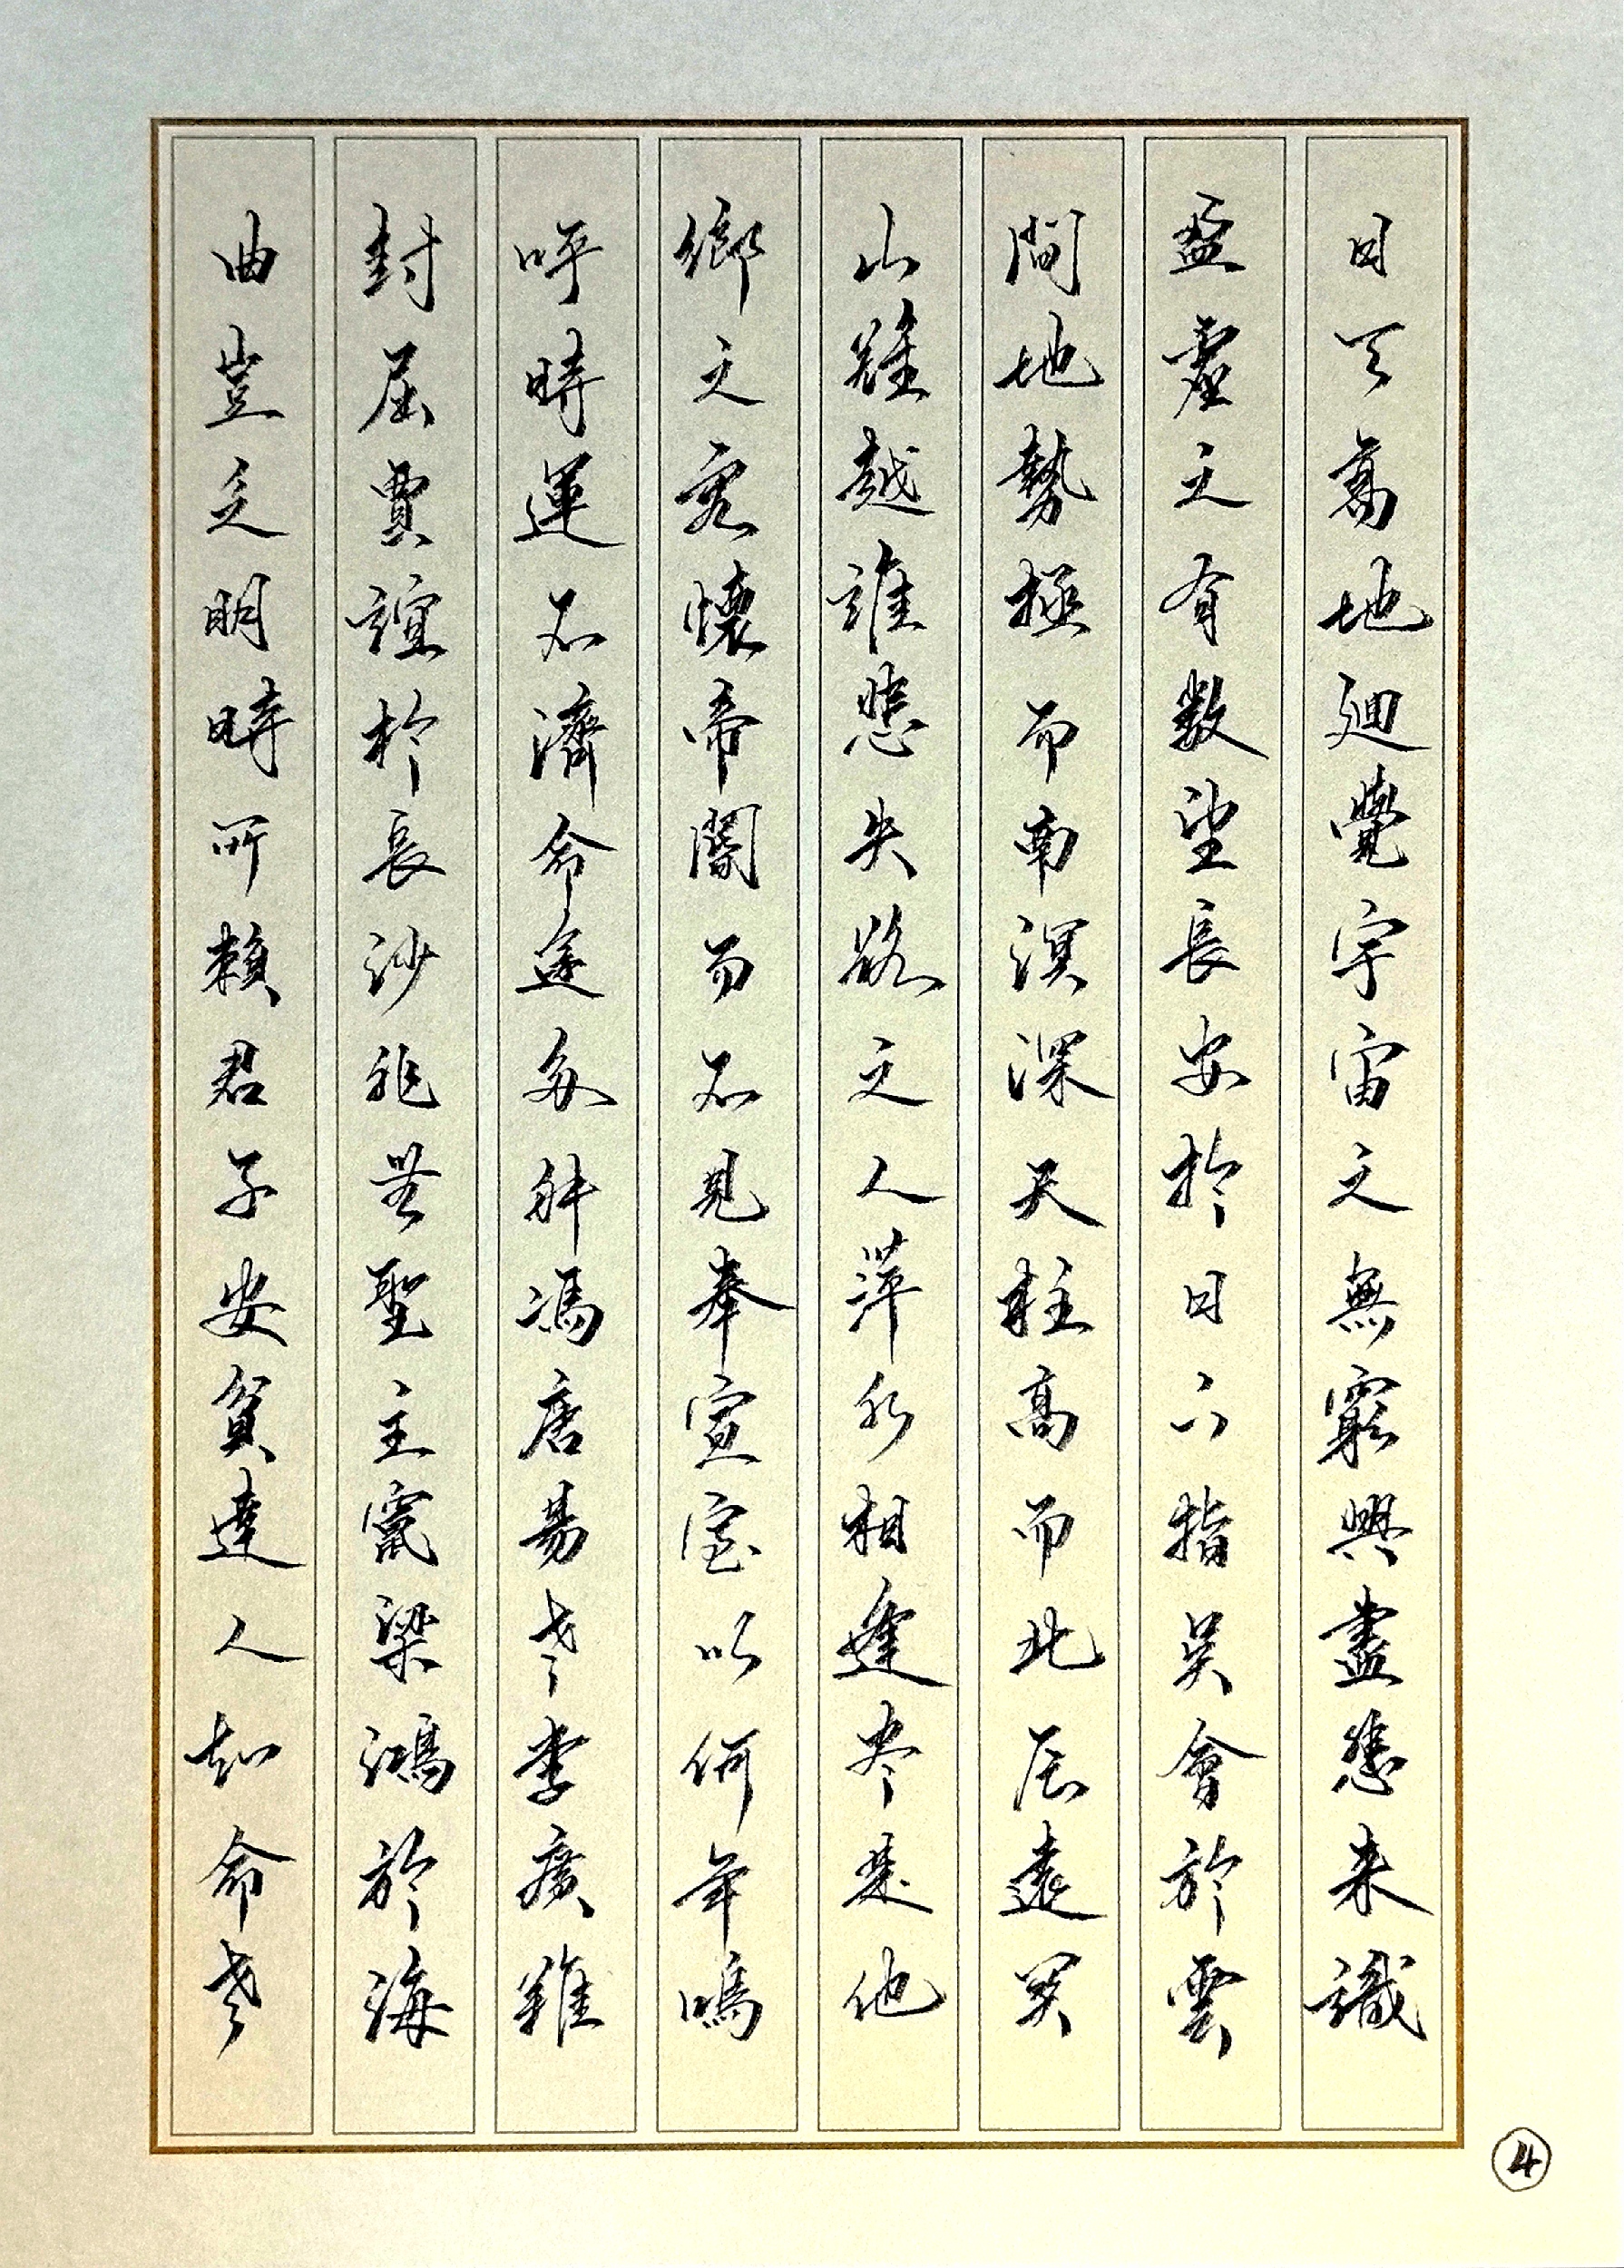 日天高地廻覺宇宙之無窮興盡悲來識
盈虛之有数望長安於日下指吳會於雲
間地勢極而南溟深天柱高而北辰遠関
山難越誰悲失路之人萍水相逢尽是他
鄉之客懷帝閽而不見奉宣室以何年嗚
呼時運不濟命途多舛馮唐易老李廣難
封屈賈誼於長沙非無聖主竄梁鴻於海
曲豈乏明時所賴君子安貧達人知命老
④